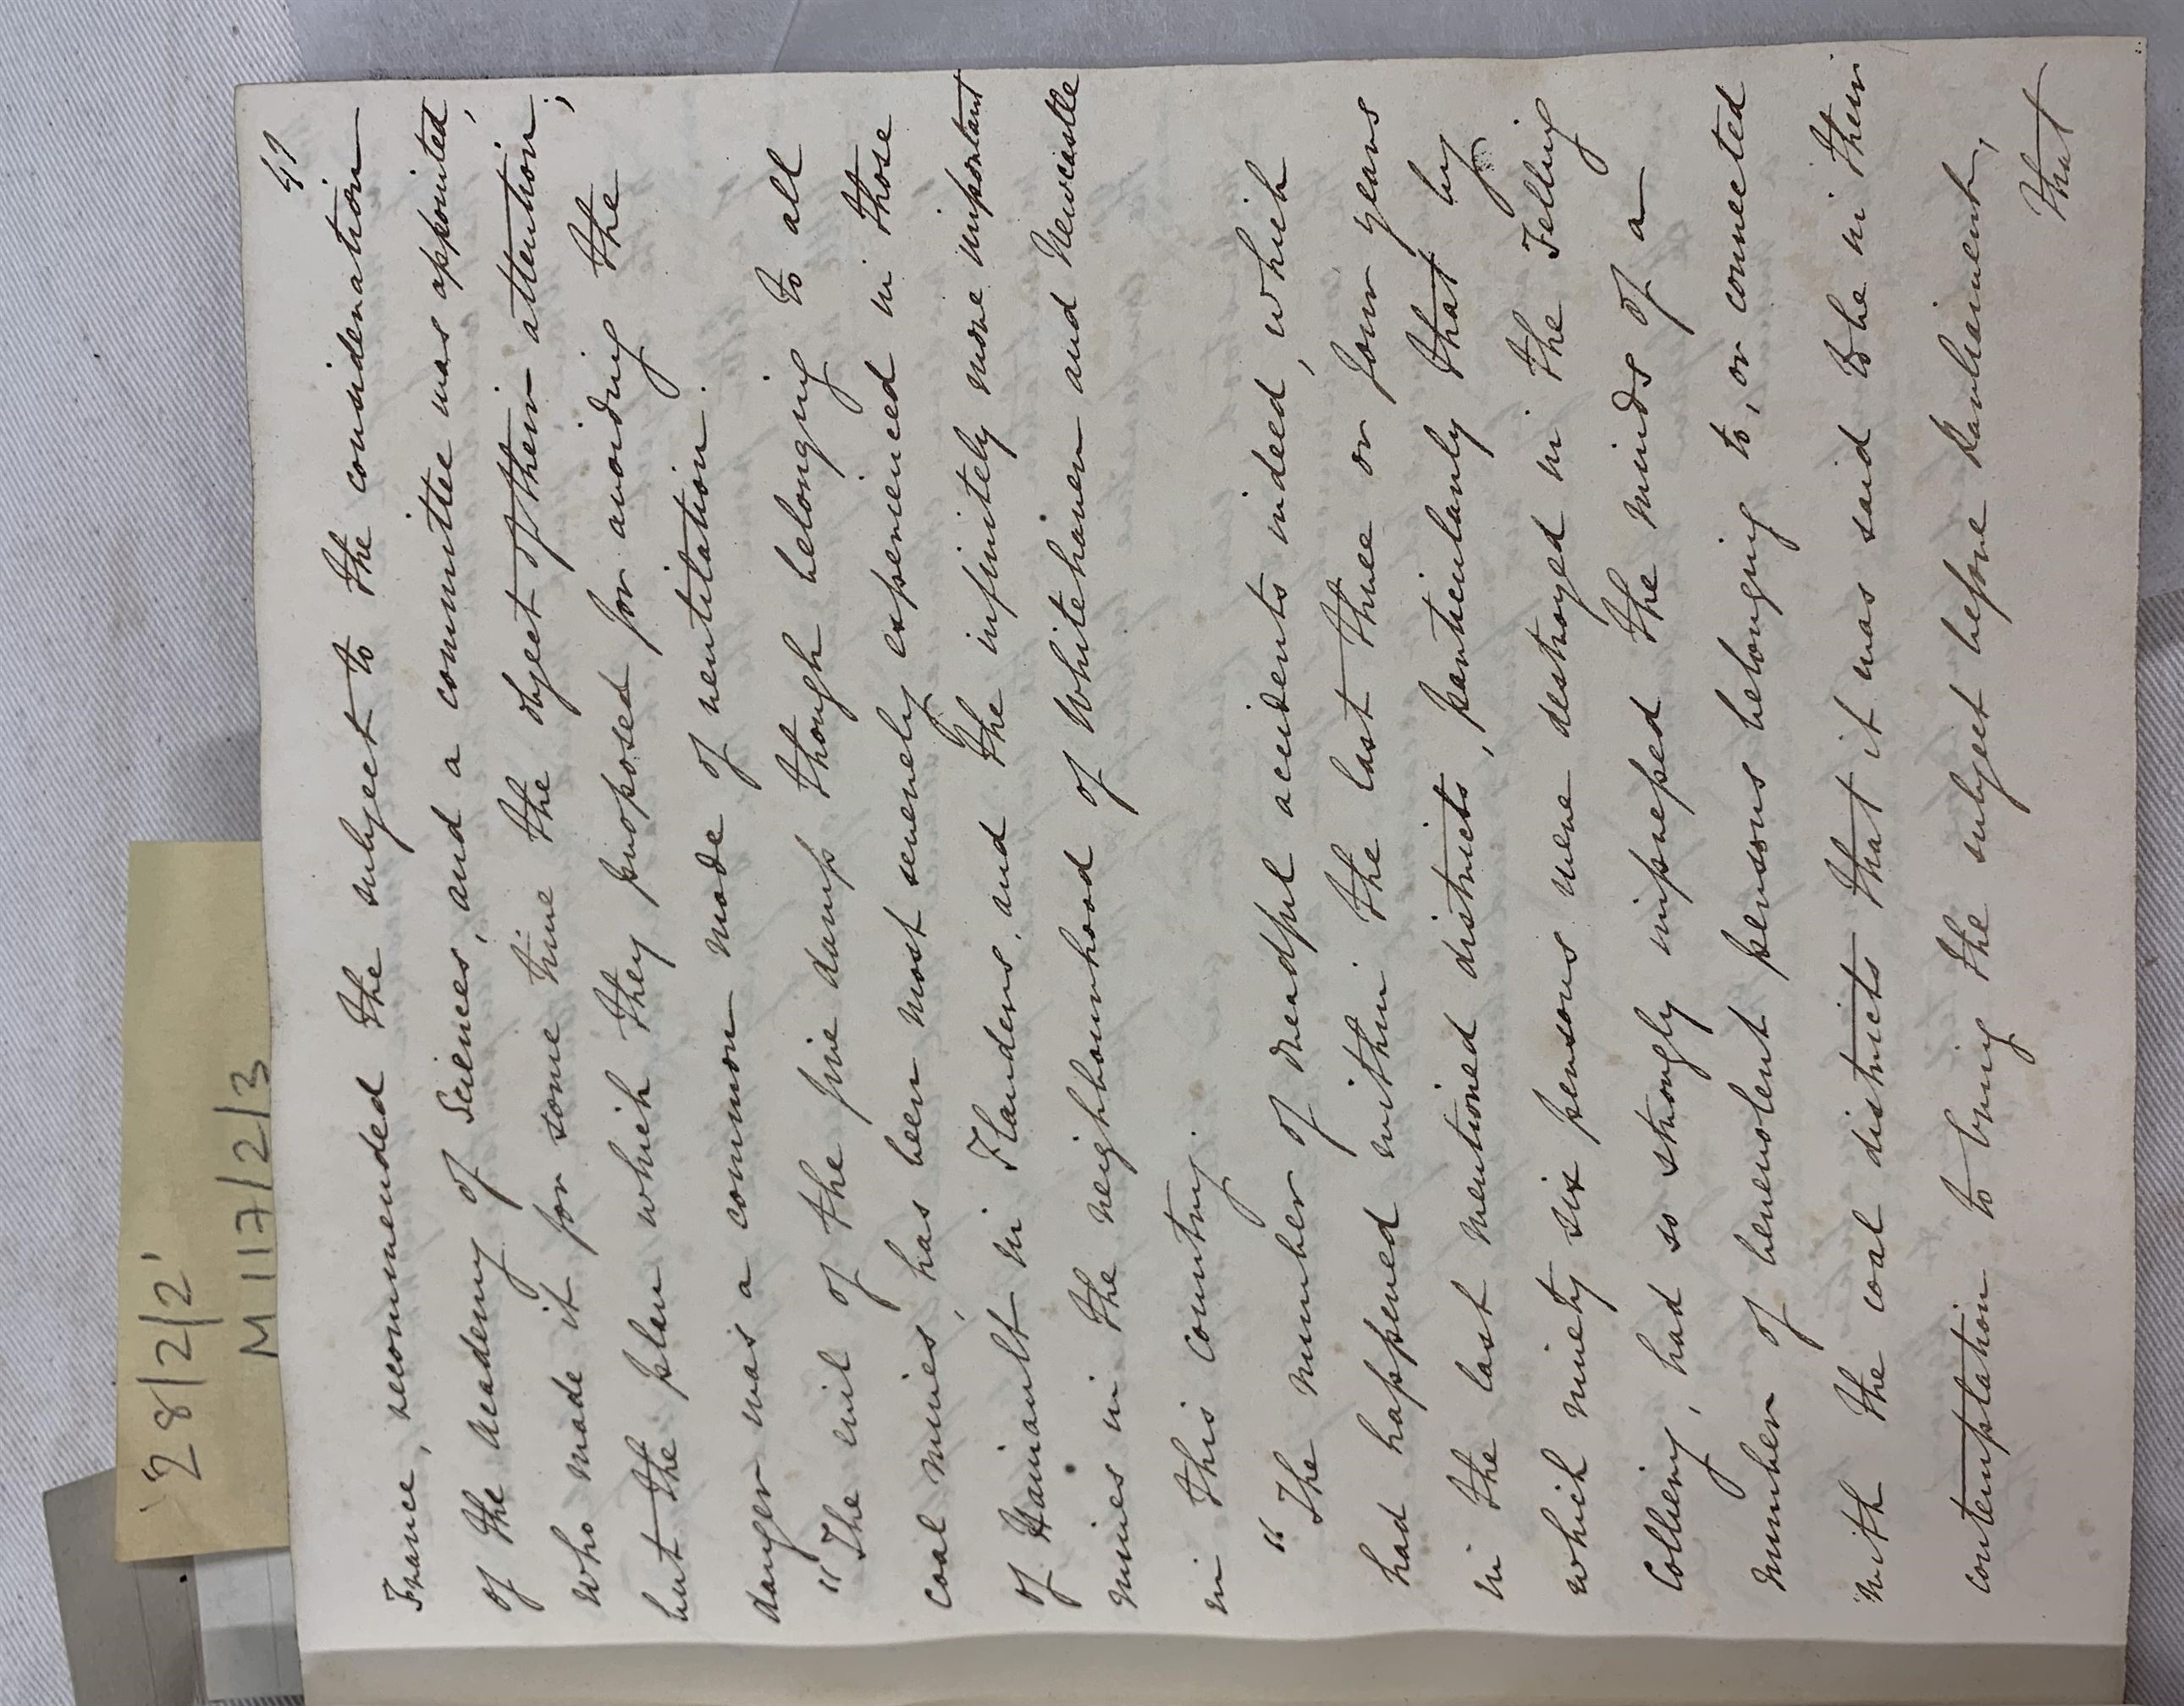 '28/2/2'
M117/2/3
France, recommended the subject to the consideration
of the Academy of Sciences, and a committee was appointed,
who made it for some time the object of their attention;
but the plan which they proposed for avoiding the
danger was a common mode of ventilation.
"The evil of the fire damp though belonging to all
coal mines, has been most severely experienced in those
of Hainault in Flanders, and the infinitely more important
mines in the neighbourhood of Whitehaven and Newcastle
in this country.
"The number of dreadful accidents indeed, which
had happened within the last three or four years
in the last mentioned districts, particularly that by
which ninety six persons were destroyed in the Felling
Colliery, had so strongly impressed the minds of a
number of benevolent persons belonging to, or connected
with the coal districts that it was said to be in their
contemplation to bring the subject before Parliament,
that